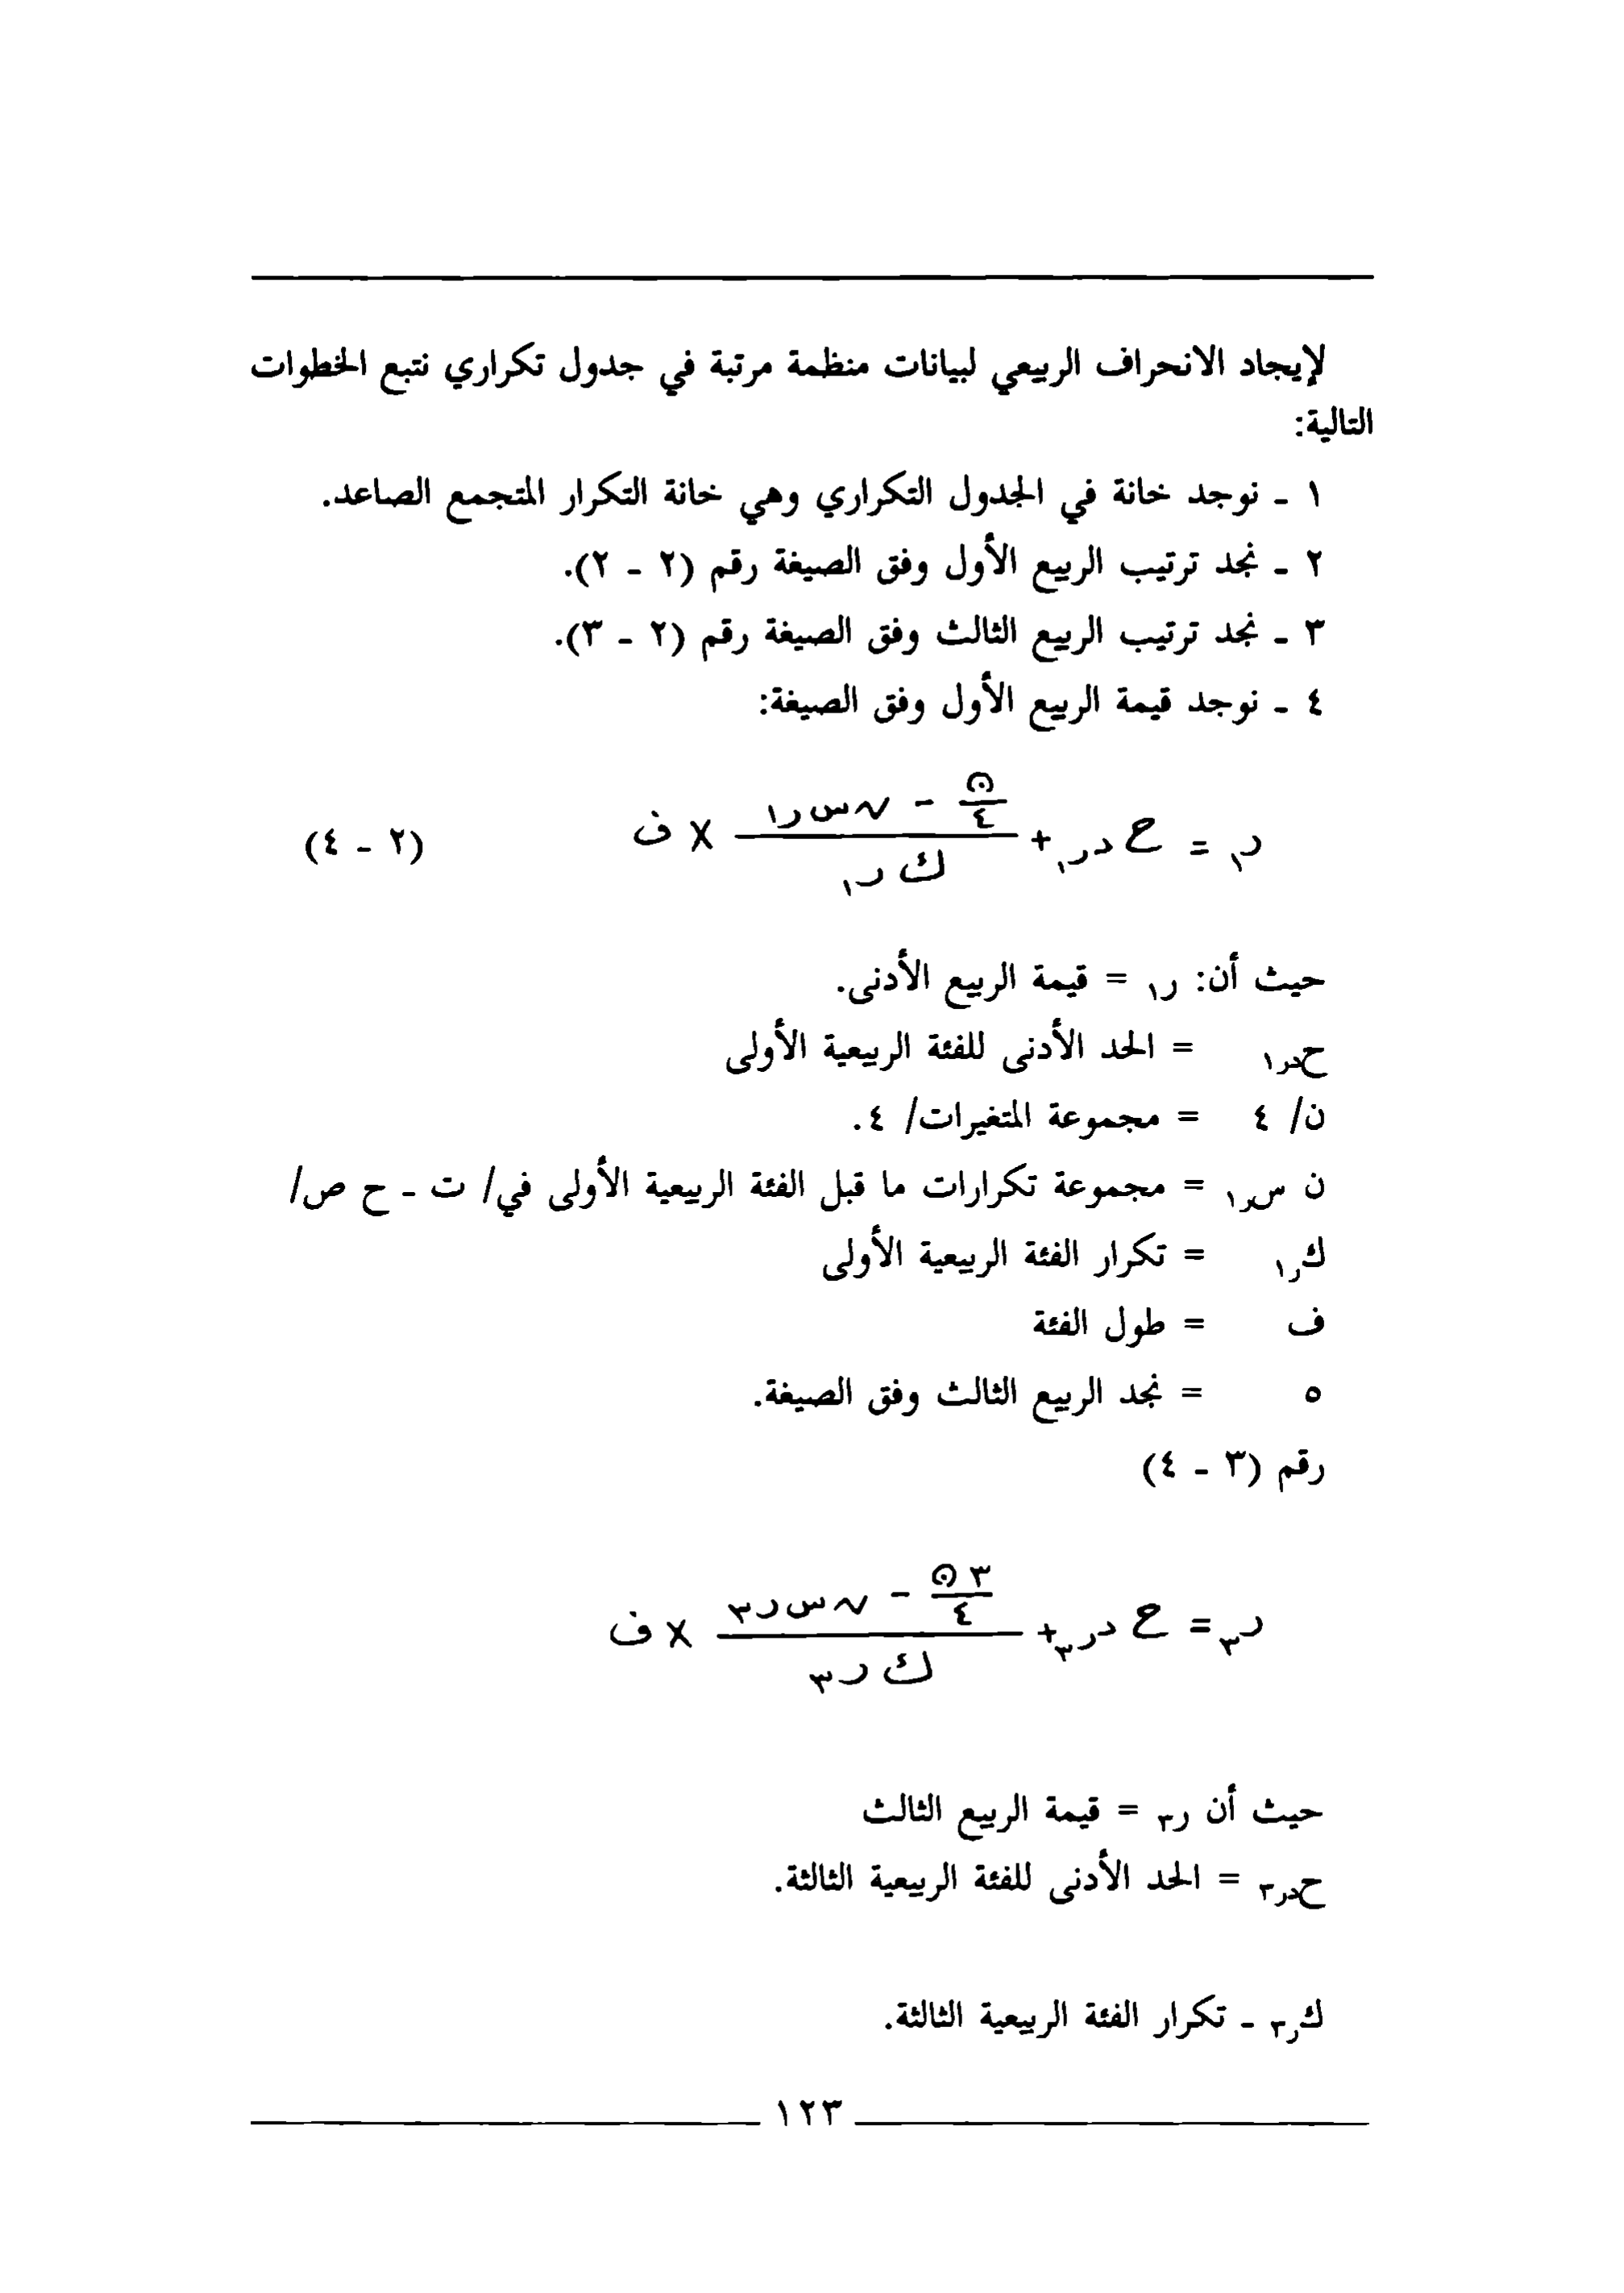 لإيجاد الانحراف الربيعي لبيانات منظمة مرتبة في جدول تكراري نتبع الخطوات
التالية:
١ - نوجد خانة في الجدول التكراري وهي خانة التكرار المتجمع الصاعد.
٢ - نجد ترتيب الربيع الأول وفق الصيغة رقم (٢ - ٢).
٣ - نجد ترتيب الربيع الثالث وفق الصيغة رقم (٢ - ٣).
٤ - نوجد قيمة الربيع الأول وفق الصيغة:
ر١ = ح در١ + (ن/٤ - ن س ر١) / ك ر١ × ف (٢ - ٤)
حيث أن: ر١ = قيمة الربيع الأدنى.
حدر١ = الحد الأدنى للفئة الربيعية الأولى
ن/ ٤ = مجموعة المتغيرات/ ٤.
ن سر١ = مجموعة تكرارات ما قبل الفئة الربيعية الأولى في/ ت - ح ص/
كر١ = تكرار الفئة الربيعية الأولى
ف = طول الفئة
٥ = نجد الربيع الثالث وفق الصيغة.
رقم (٣ - ٤)
ر٣ = ح در٣ + (٣ ن/٤ - ن س ر٣) / ك ر٣ × ف
حيث أن ر٣ = قيمة الربيع الثالث
حدر٣ = الحد الأدنى للفئة الربيعية الثالثة.
كر٣ - تكرار الفئة الربيعية الثالثة.
١٢٣